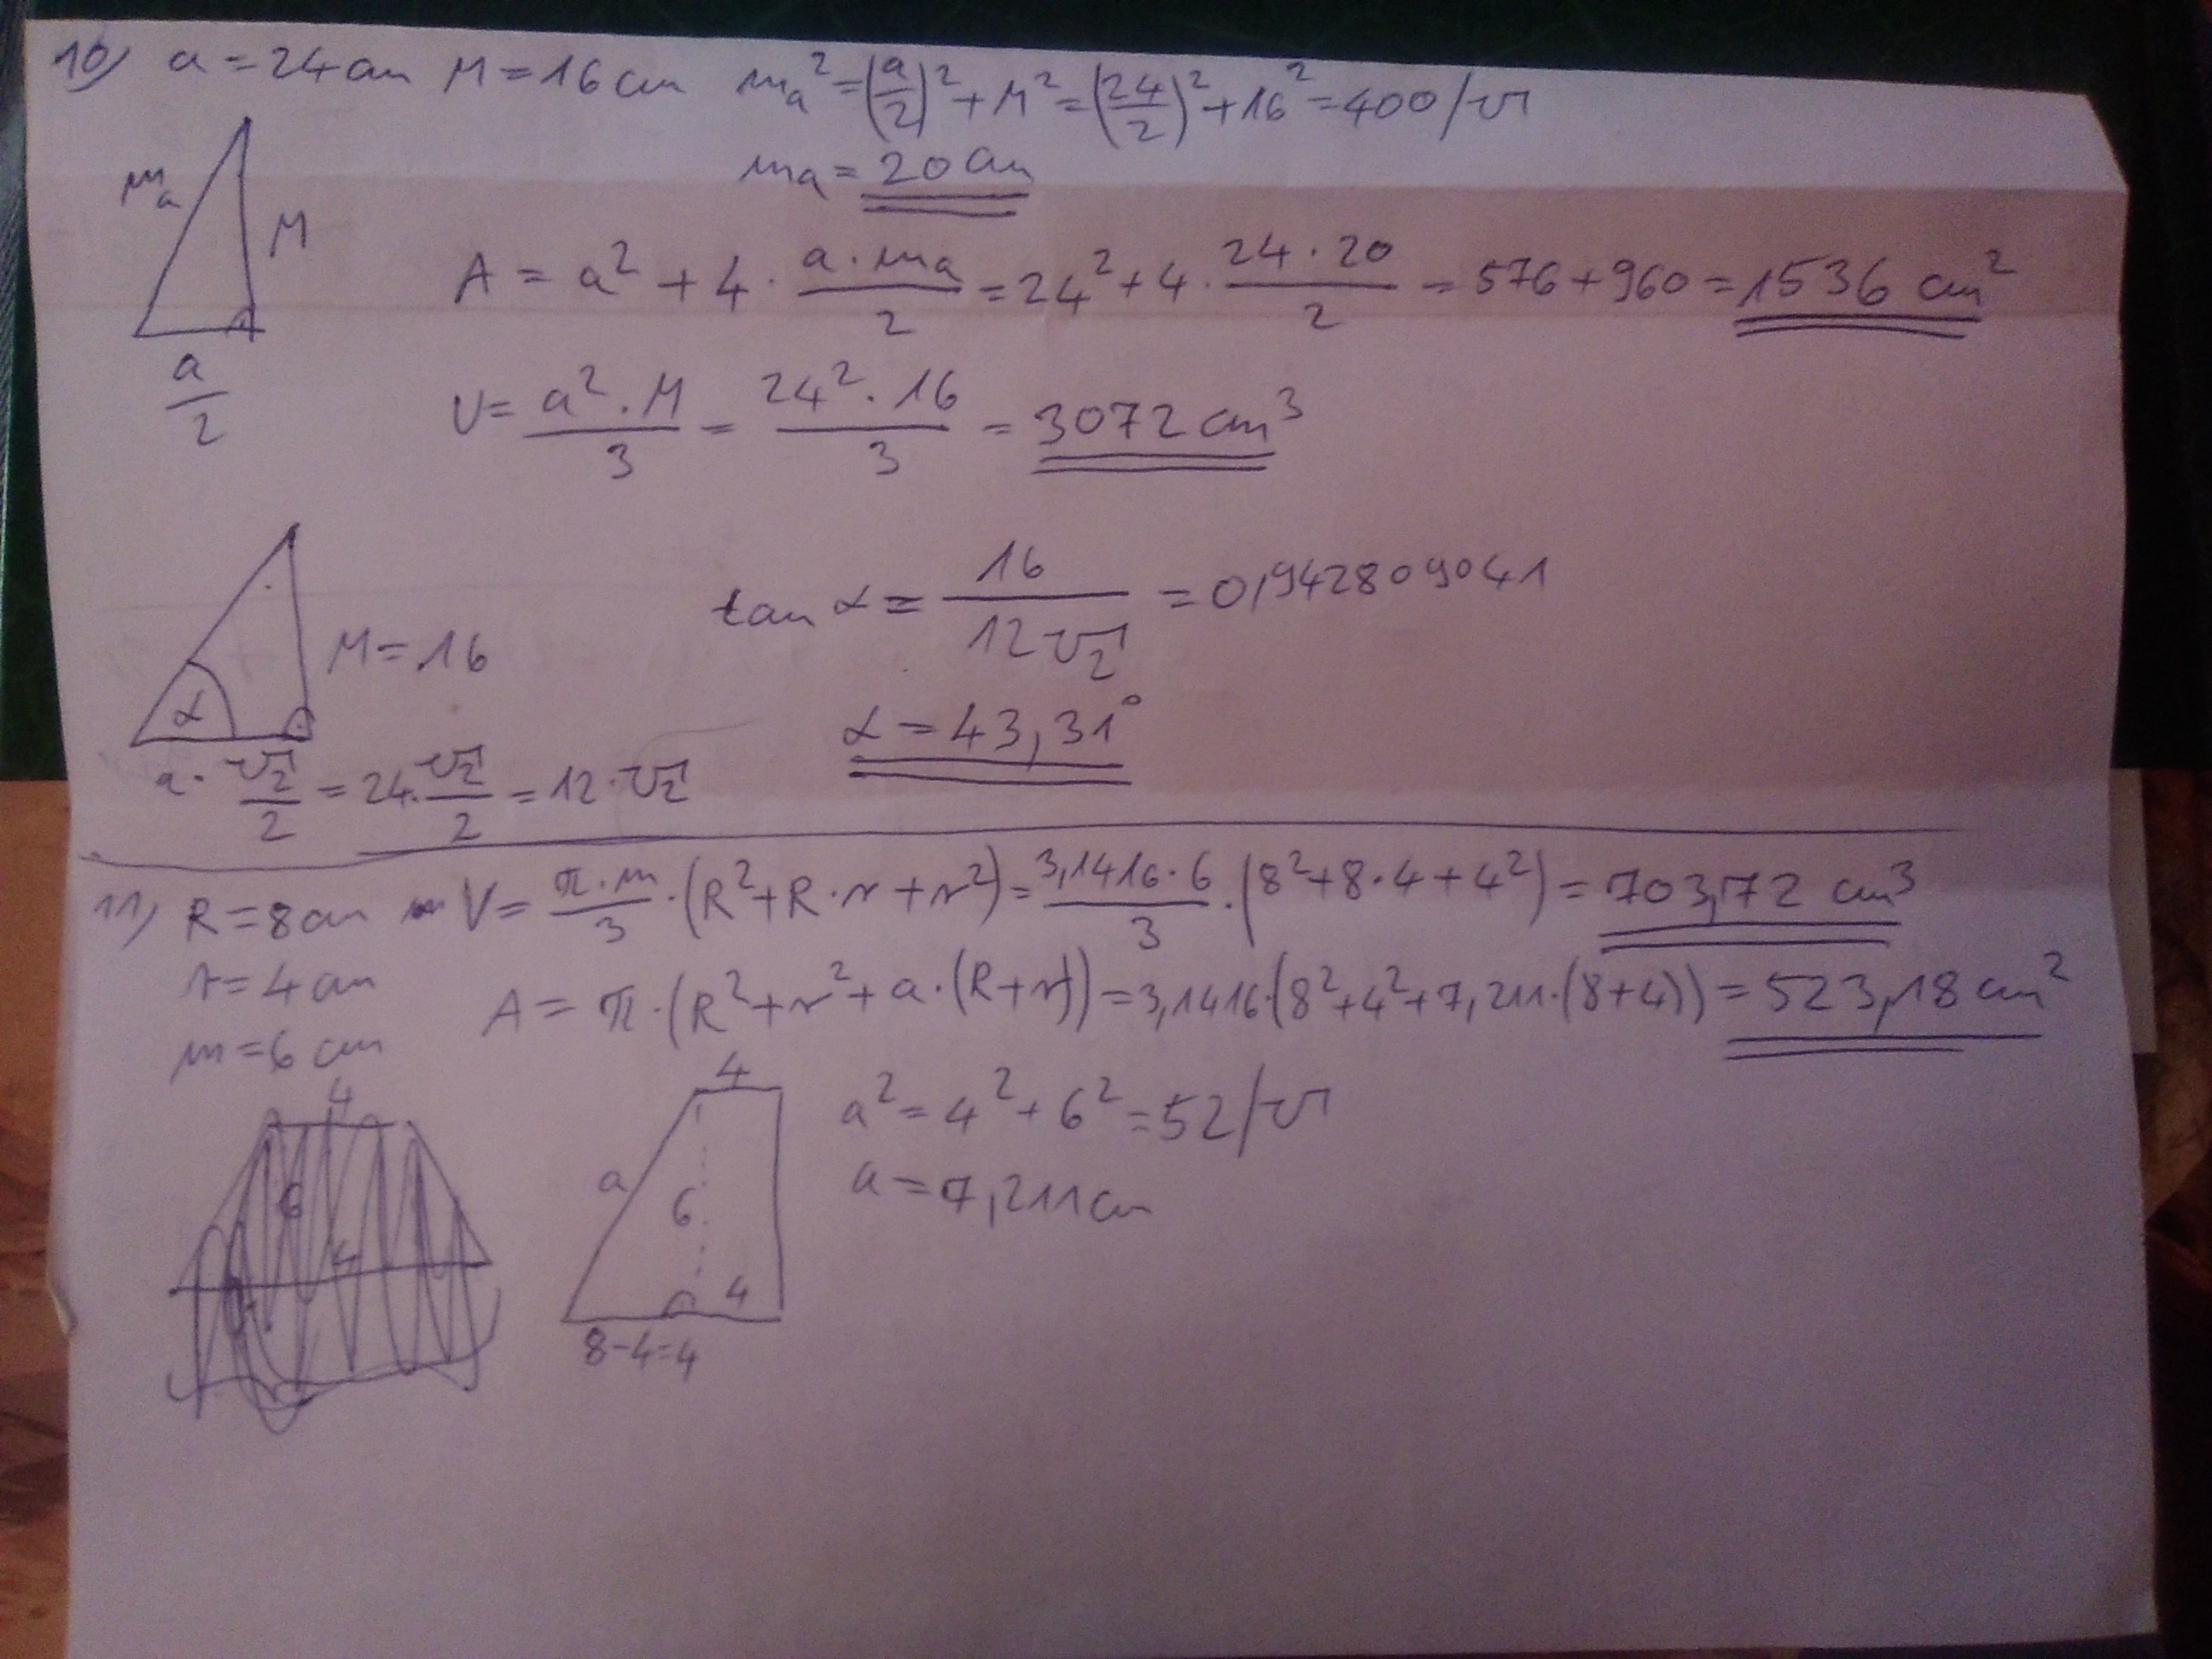 10) a = 24 cm M = 16 cm mₐ² = (a/2)² + M² = (24/2)² + 16² = 400 /√
mₐ = 20 cm
mₐ
M
a/2
A = a² + 4 · (a · mₐ)/2 = 24² + 4 · (24 · 20)/2 = 576 + 960 = 1536 cm²
V = (a² · M)/3 = (24² · 16)/3 = 3072 cm³
tan α = 16/(12√2) = 0,942809041
M = 16
α
α = 43,31°
a · √2/2 = 24 · √2/2 = 12 · √2
11) R = 8 cm V = (π · m)/3 · (R² + R · r + r²) = (3,1416 · 6)/3 · (8² + 8 · 4 + 4²) = 703,72 cm³
r = 4 cm
A = π · (R² + r² + a · (R + r)) = 3,1416 · (8² + 4² + 7,211 · (8 + 4)) = 523,18 cm²
m = 6 cm
4
6
4
4
a
6
4
8 - 4 = 4
a² = 4² + 6² = 52 /√
a = 7,211 cm